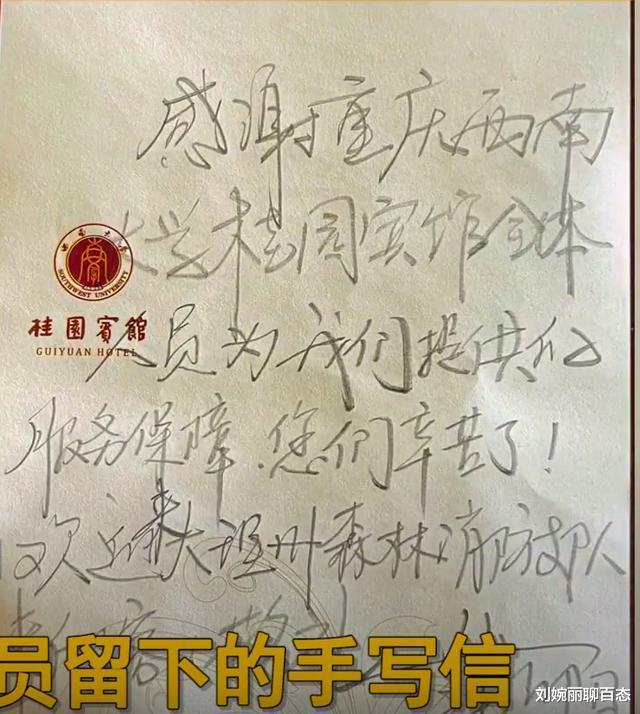 感谢重庆西南
大学桂园宾馆全体
西南大学
SOUTHWEST UNIVERSITY
桂園賓館
GUIYUAN HOTEL
人员为我们提供的
服务保障.您们辛苦了!
欢迎来大理州森林消防支队
员留下的手写信
刘婉丽聊百态